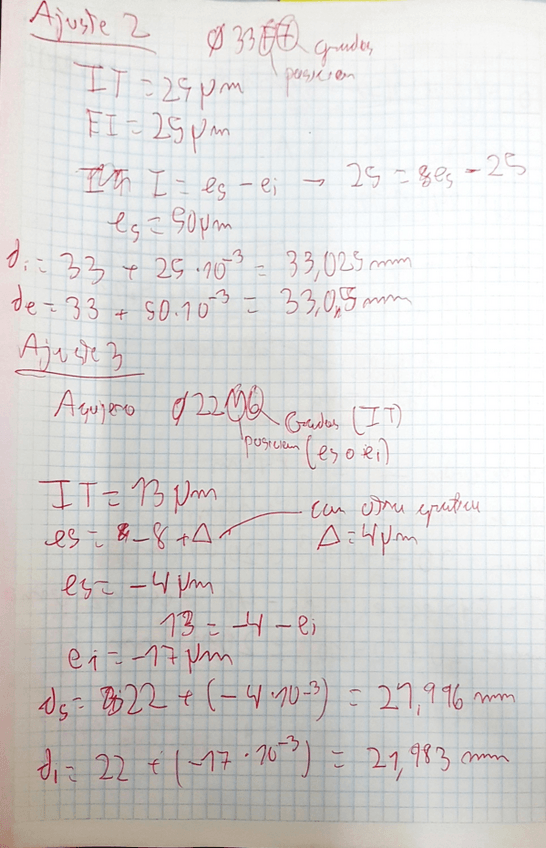 Ajuste 2
Ø 33F7 grados
posicion
IT = 25 μm
FI = 25 μm
I = es - ei → 25 = es - 25
es = 50 μm
di = 33 + 25·10⁻³ = 33,025 mm
de = 33 + 50·10⁻³ = 33,05 mm
Ajuste 3
Agujero Ø 22M6 Grados (IT)
posicion (es o ei)
IT = 13 μm
es = -8 + Δ con otra
Δ = 4 μm
es = -4 μm
13 = -4 - ei
ei = -17 μm
ds = 22 + (-4·10⁻³) = 21,996 mm
di = 22 + (-17·10⁻³) = 21,983 mm